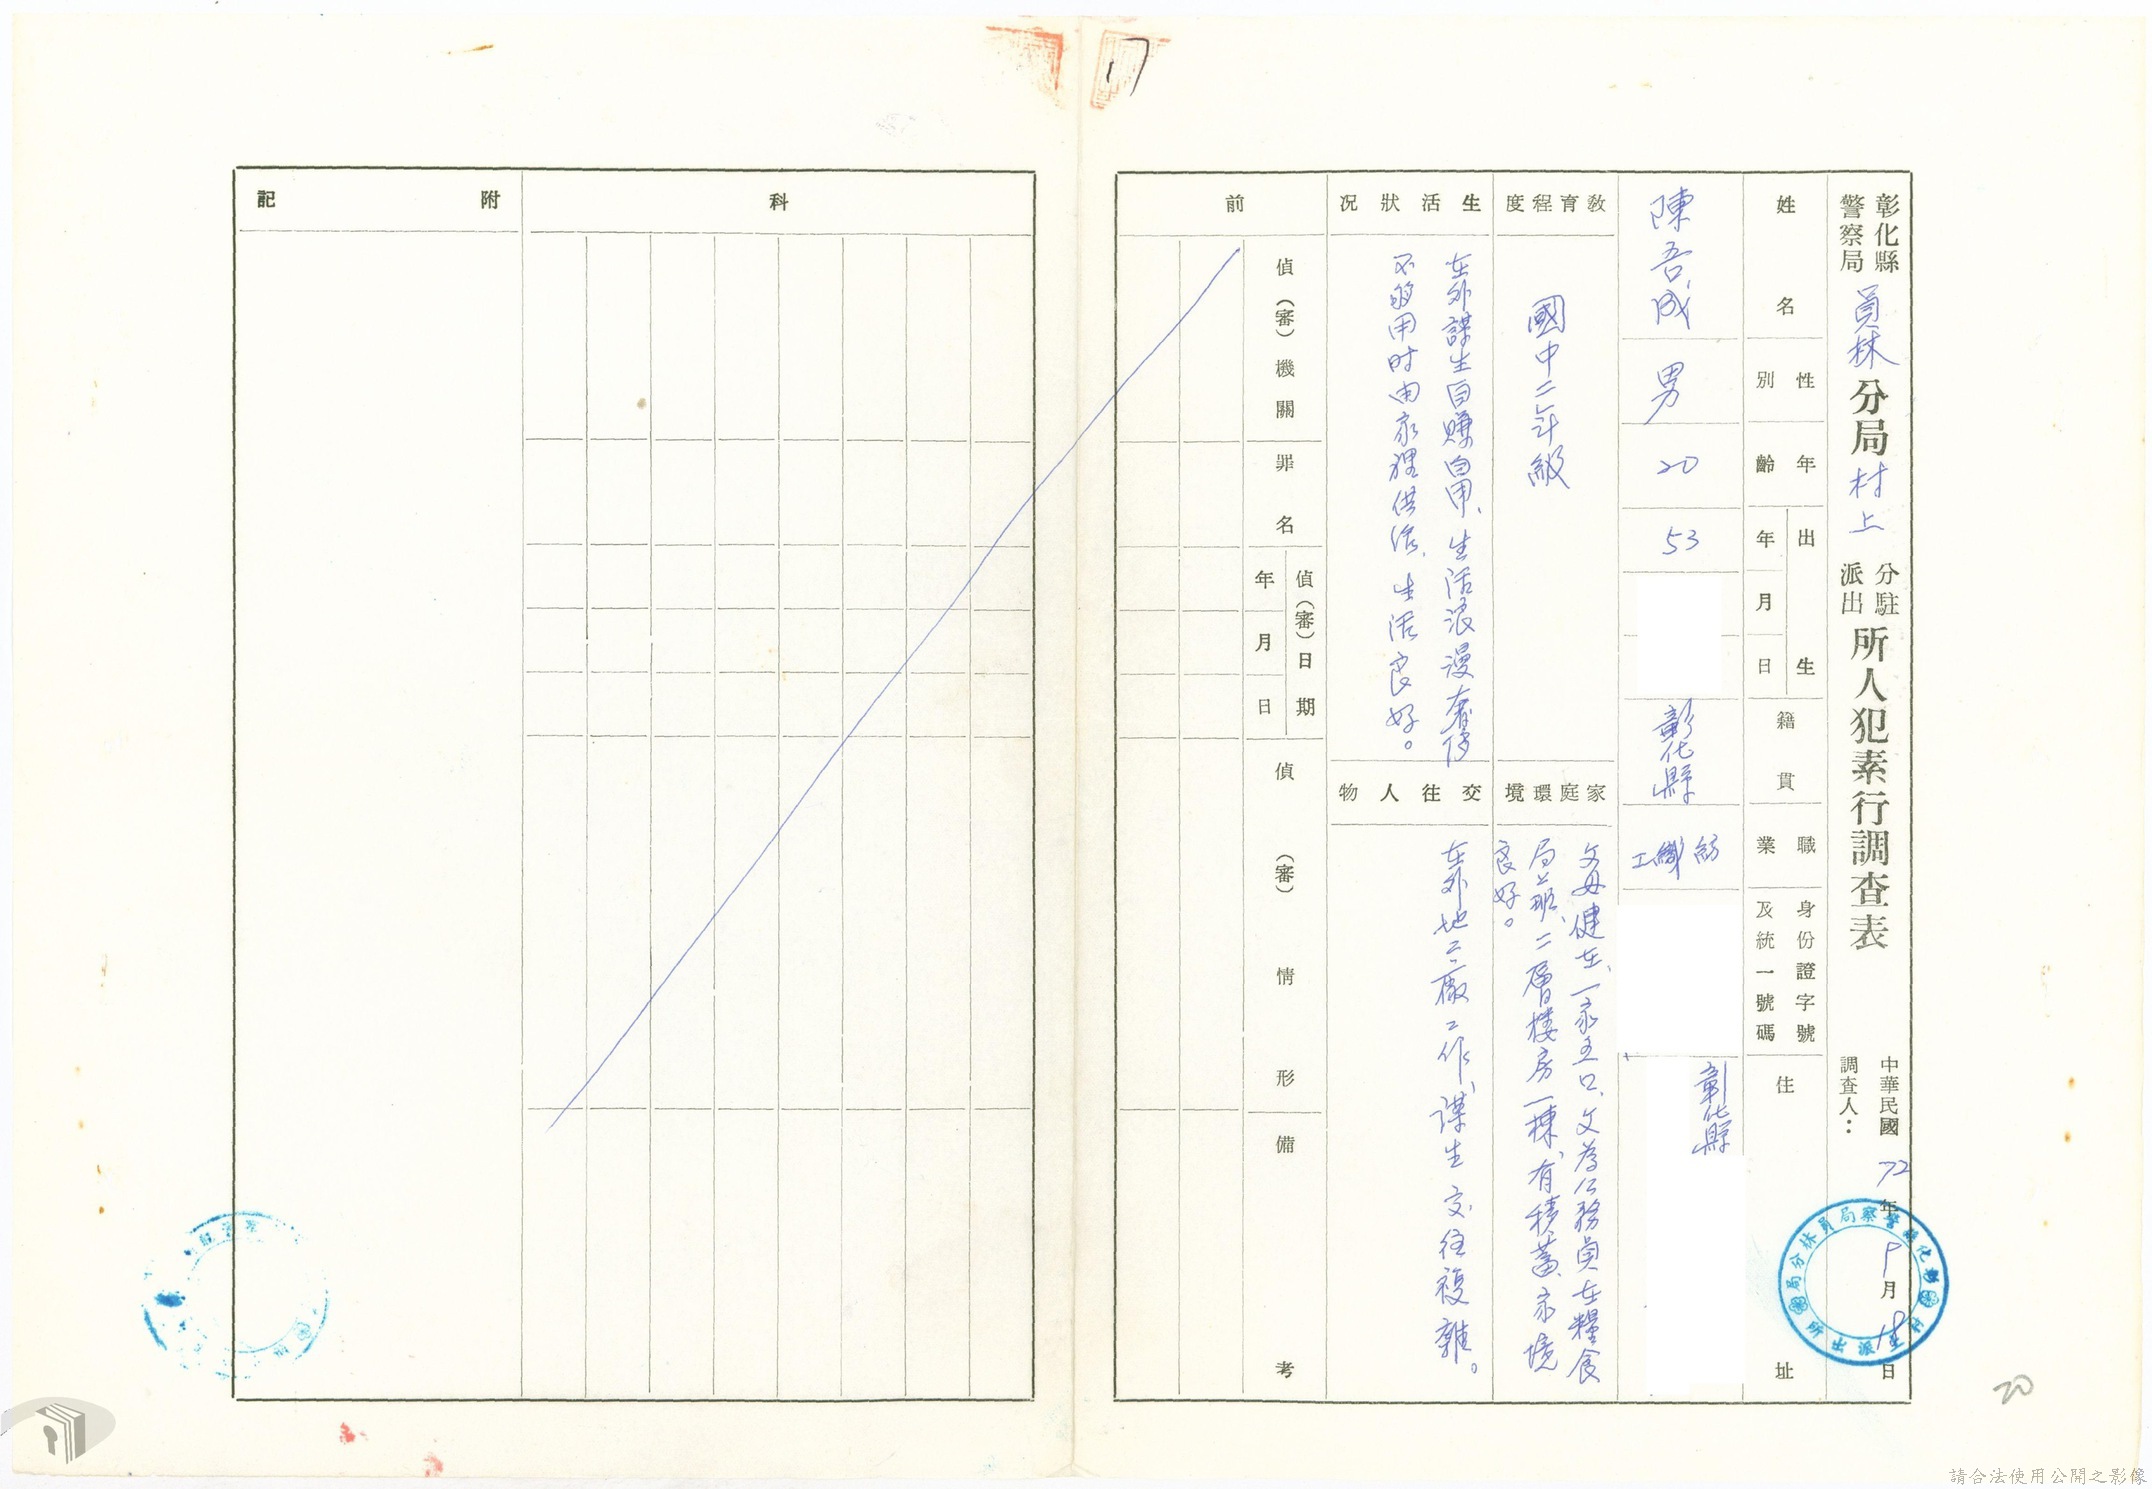 彰化縣警察局員林分局村上分駐派出所人犯素行調查表
中華民國72年5月18日
調查人：
姓名
陳吾成
性別
男
年齡
20
出生
年月日
53
籍貫
彰化縣
職業
紡織工
身份證字號及統一號碼
住址
彰化縣
教育程度
國中二年級
家庭環境
父母健在、一家五口、父為公務員在糧食
局上班、二層樓房一棟、有積蓄、家境
良好。
生活狀況
在外謀生自賺自用、生活浪漫奢侈
不夠用时由家裡供给、生活良好。
交往人物
在外地工廠工作、謀生交往複雜。
前科
偵（審）機關
罪名
偵（審）日期
年月日
偵（審）情形
備考
附記
17
20
彰化縣警察局員林分局村上派出所
請合法使用公開之影像